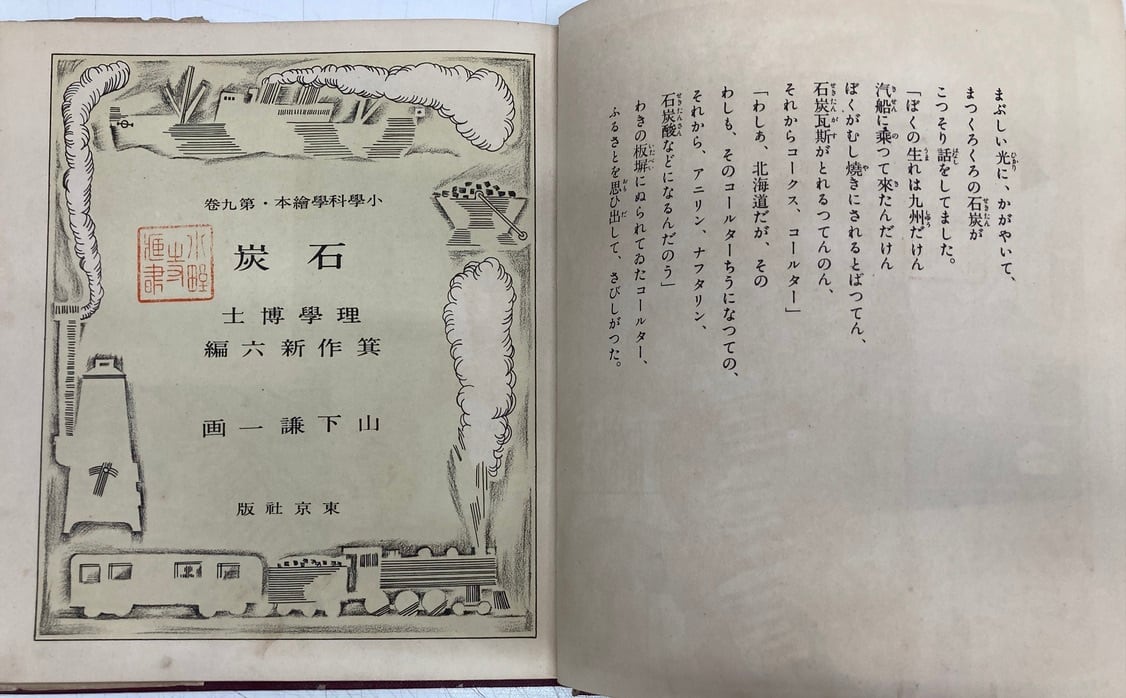 まぶしい光に、かがやいて、
まつくろくろの石炭が
こつそり話をしてました。
「ぼくの生れは九州だけん
汽船に乘つて來たんだけん
ぼくがむし燒きにされるとばつてん、
石炭瓦斯がとれるつてんのん、
それからコークス、コールター」
「わしあ、北海道だが、その
わしも、そのコールターちうになつての、
それから、アニリン、ナフタリン、
石炭酸などになるんだのう」
わきの板塀にぬられてゐたコールター、
ふるさとを思ひ出して、さびしがつた。
小學科學繪本・第九卷
石炭
理學博士
箕作新六編
山下謙一画
東京社版